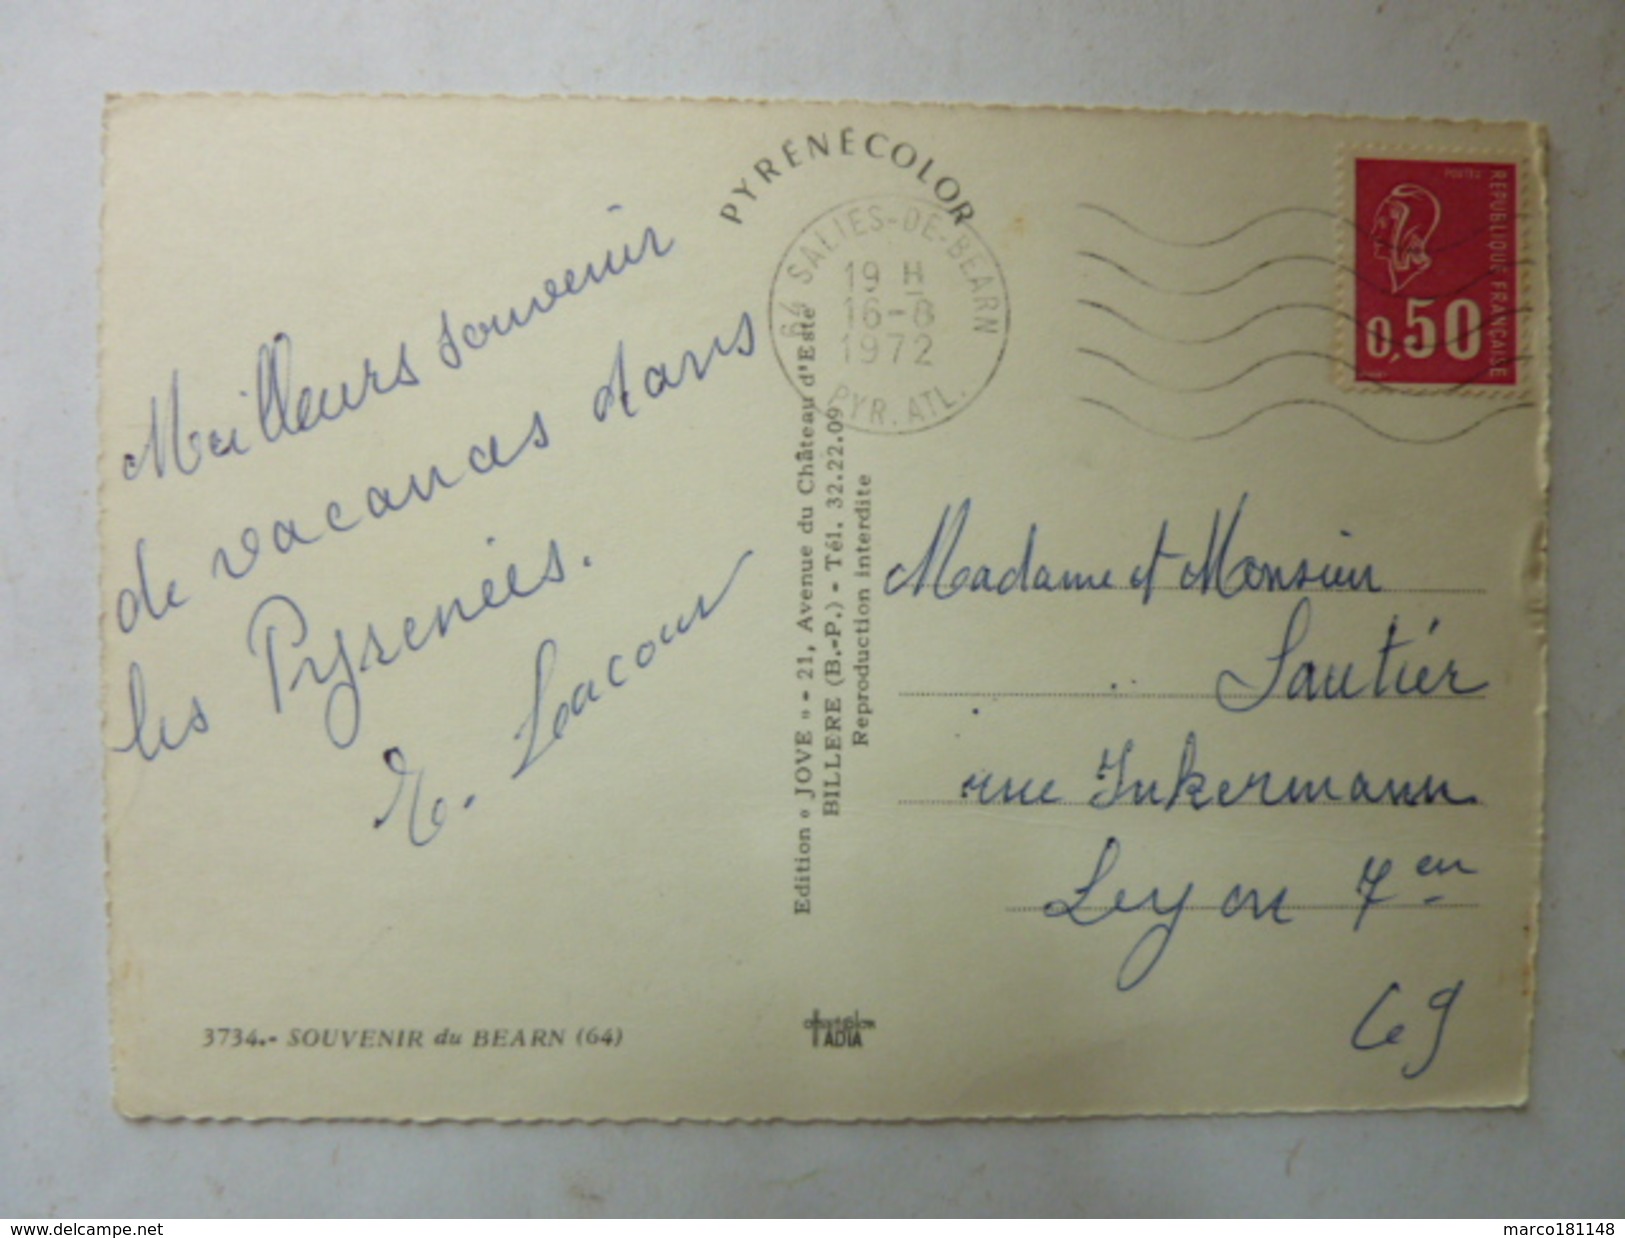 PYRENECOLOR
Meilleurs souvenir
de vacances dans
les Pyrenées.
Lacour
64 SALIES-DE-BEARN
19 H
16-8
1972
PYR. ATL.
POSTES
REPUBLIQUE FRANÇAISE
0,50
Edition « JOVE » - 21, Avenue du Château d'Este
BILLERE (B.-P.) - Tél. 32.22.09
Reproduction interdite
Madame et Monsieur
Sautier
rue Inkermann
Leyon 7en
69
3734.- SOUVENIR du BEARN (64)
ADIA
www.delcampe.net
marco181148